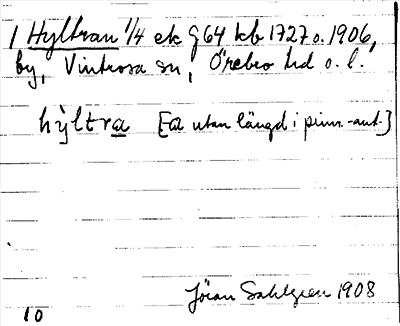 1 Hyltran 1/4 ek g 64 kb 1727 o. 1906,
by, Vintrosa sn, Örebro hd o. l.
hỳltra [a utan längd i prim.-ant.]
Jöran Sahlgren 1908
10